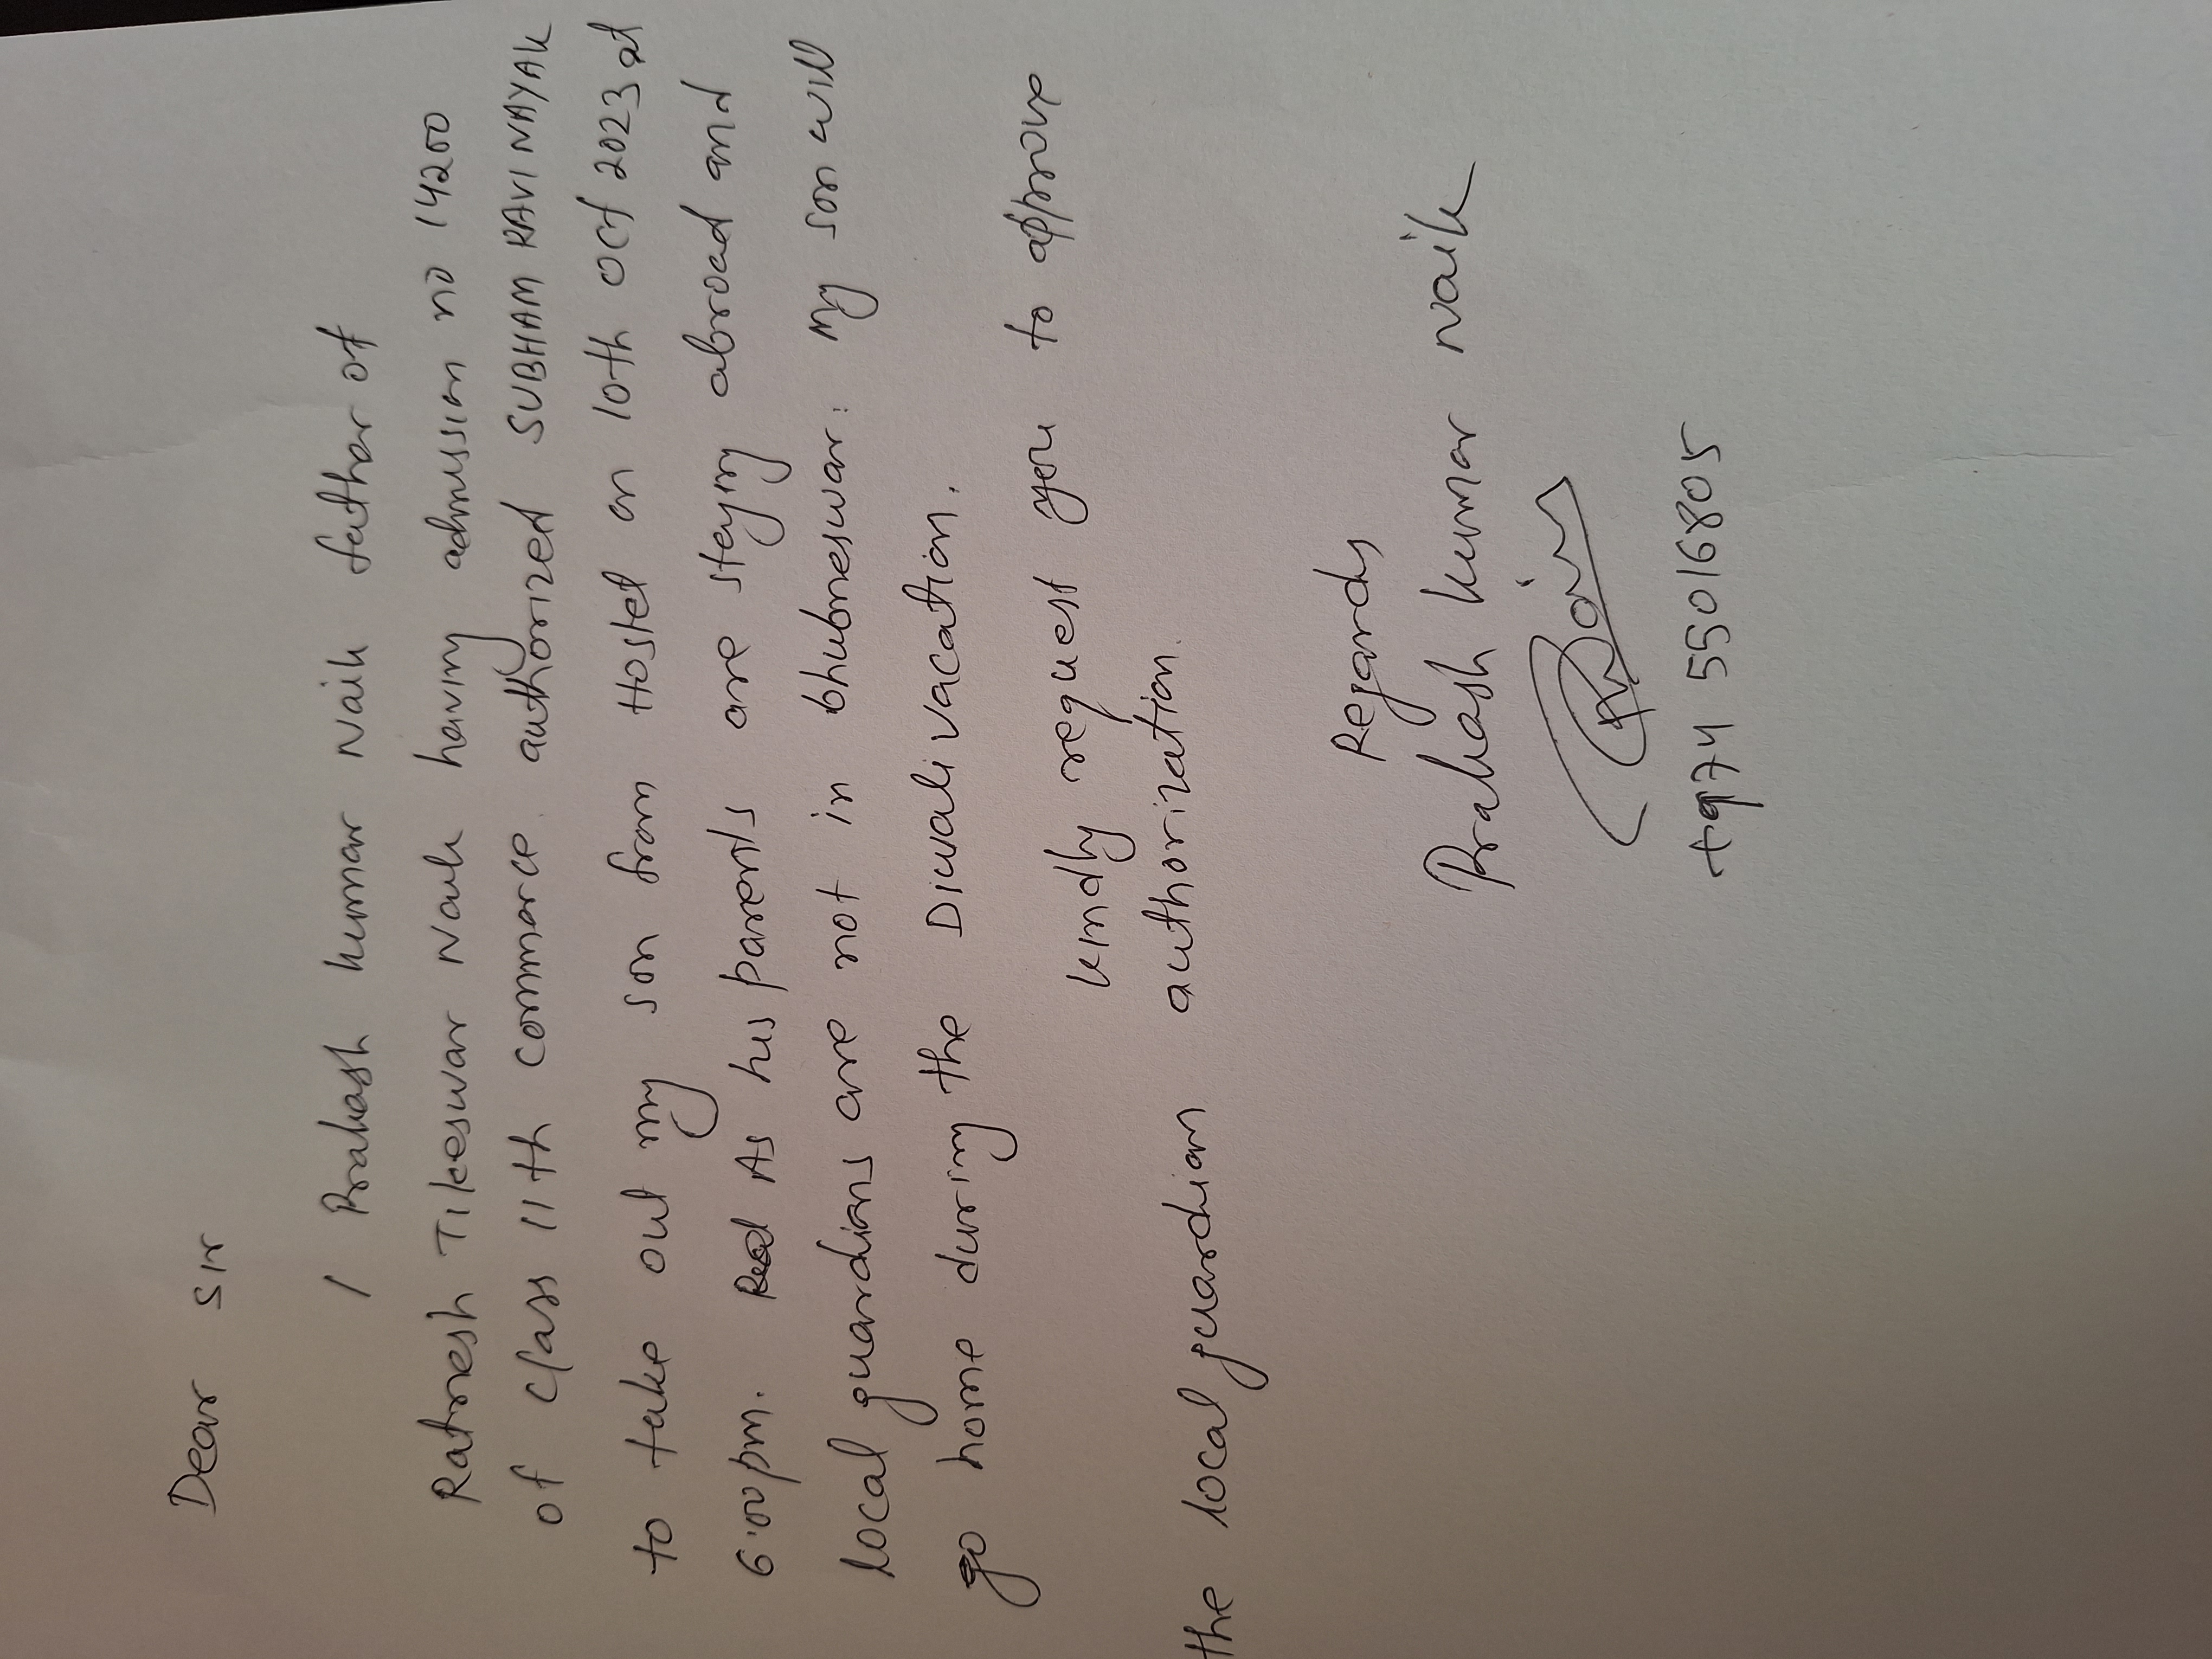 Dear Sir
I Prakash kumar Naik father of
Ratnesh Tikeswar Naik having admission no 14200
of class 11th commerce. authorized SUBHAM RAVI NAYAK
to take out my son from Hostel on 10th Oct 2023 at
6:00pm. As his parents are staying abroad and
local guardians are not in bhubneswar. My son will
go home during the Diwali vacation.
kindly request you to approve
the local guardian authorization.
Regards
Prakash kumar naik
+974 55016805